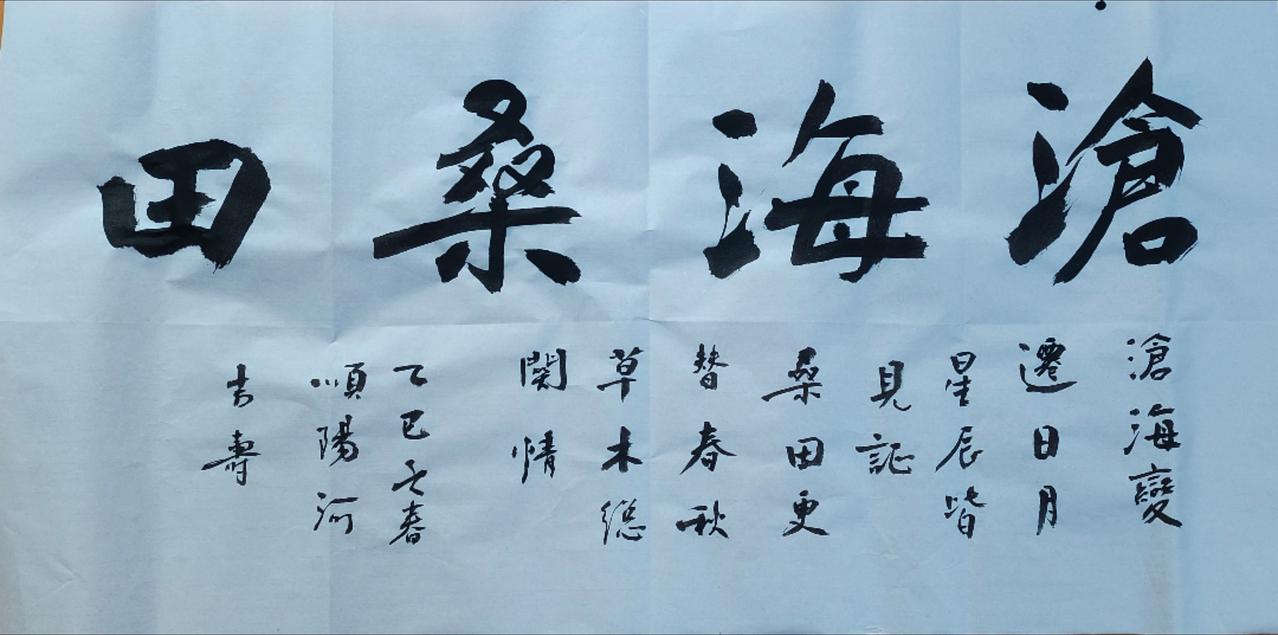 滄海桑田
滄海變
遷日月
星辰皆
見証
桑田更
替春秋
草木總
関情
乙巳之春
順陽河
吉壽